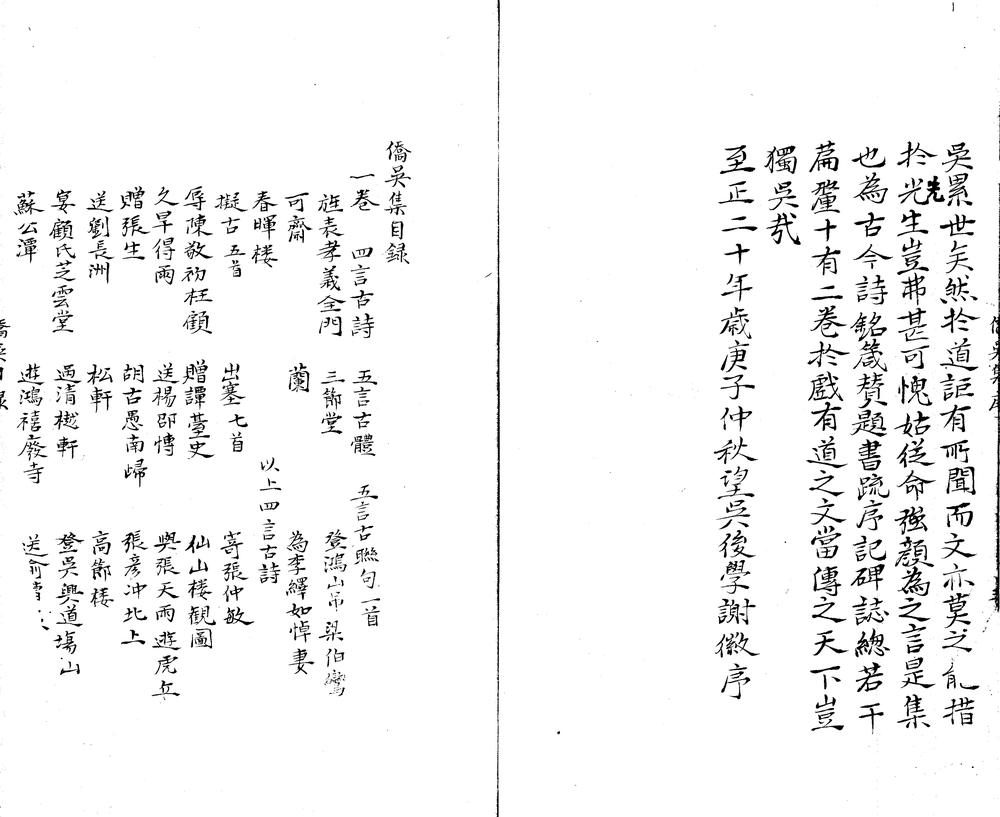 吳累世矣然扵道詎有所聞而文亦莫之能措
扵先生豈弗甚可愧姑從命強顔為之言是集
也為古今詩銘箴賛題書䟽序記碑誌緫若干
萹釐十有二巻扵戲有道之文當傳之天下豈
獨吳㢤
至正二十年歳庚子仲秋望吳後學謝徽序
僑吳集目録
一巻 四言古詩 五言古體 五言古聯句一首
旌表孝義全門 三節堂 登鴻山吊梁伯鸞
可齋 蘭 為李繹如悼妻
春暉楼 以上四言古詩
擬古五首 出塞七首 寄張仲敏
辱陳敬初枉顧 贈譚臺史 仙山楼觀圖
久旱得雨 送楊卲愽 與張天雨遊虎丘
贈張生 胡古愚南歸 張彦冲北上
送劉長洲 松軒 高節楼
宴顧氏芝雲堂 過清樾軒 登吳興道塲山
蘇公潭 遊鴻禧廢寺 送俞